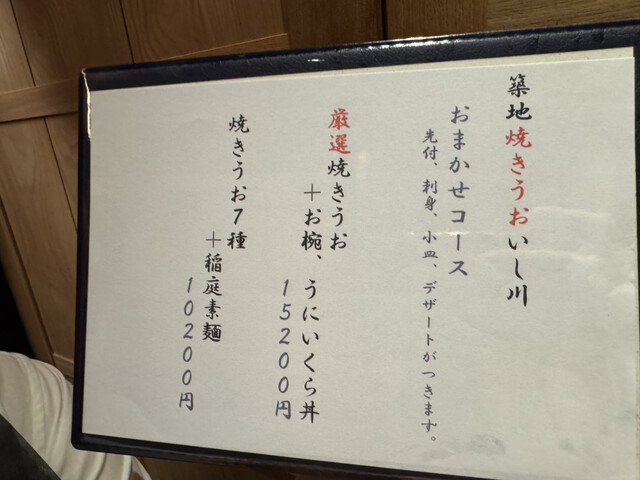 築地焼きうおいし川
おまかせコース
先付、刺身、小皿、デザートがつきます。
厳選焼きうお
＋お椀、うにいくら丼
15200円
焼きうお7種
＋稲庭素麺
10200円